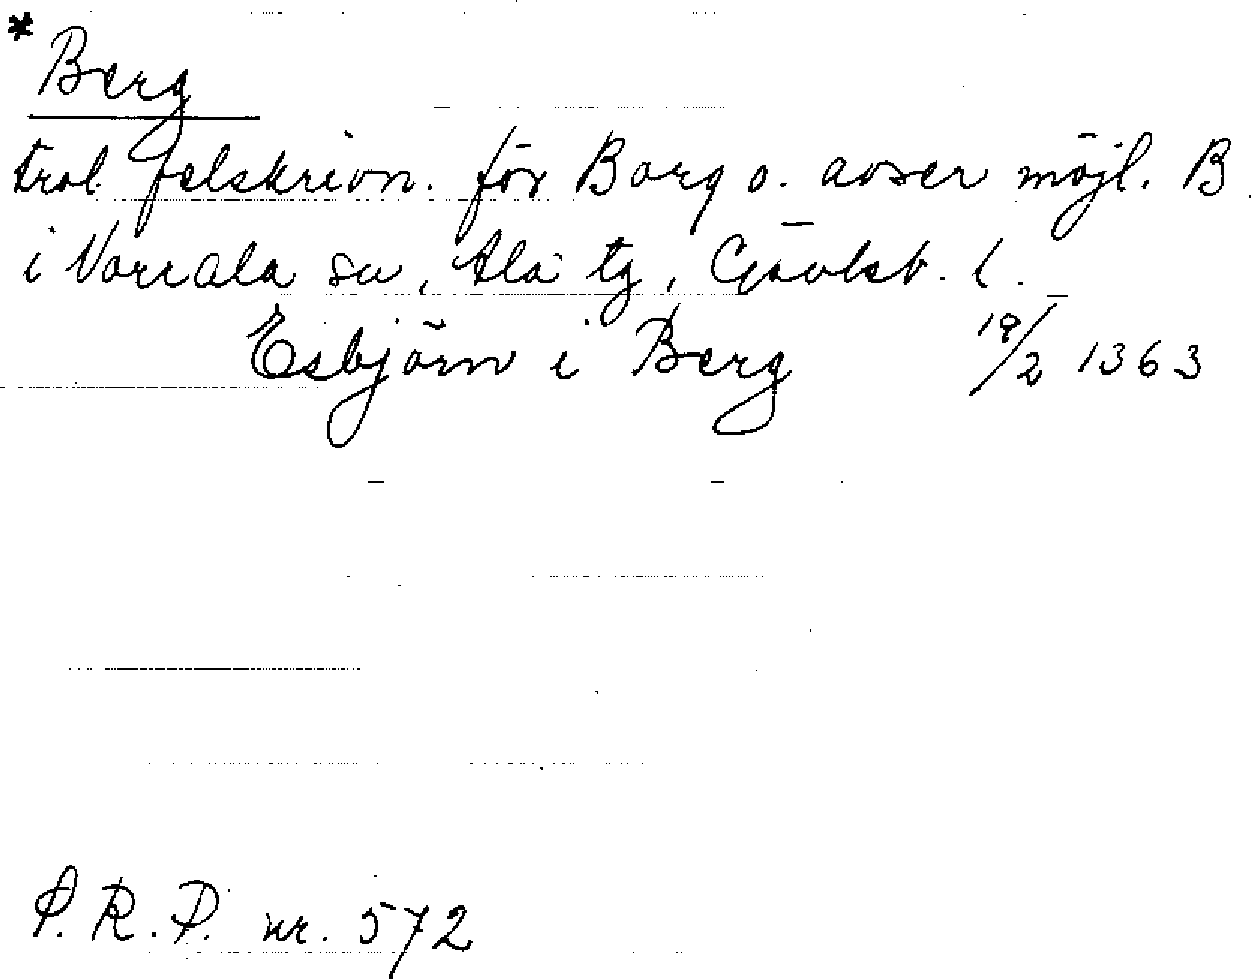 * Berg
trol. felskrivn. för Borg o. avser möjl. B
i Norrala sn, Ala tg, Gävleb. l.
Esbjörn i Berg 19/2 1363
S. R. P. nr. 572